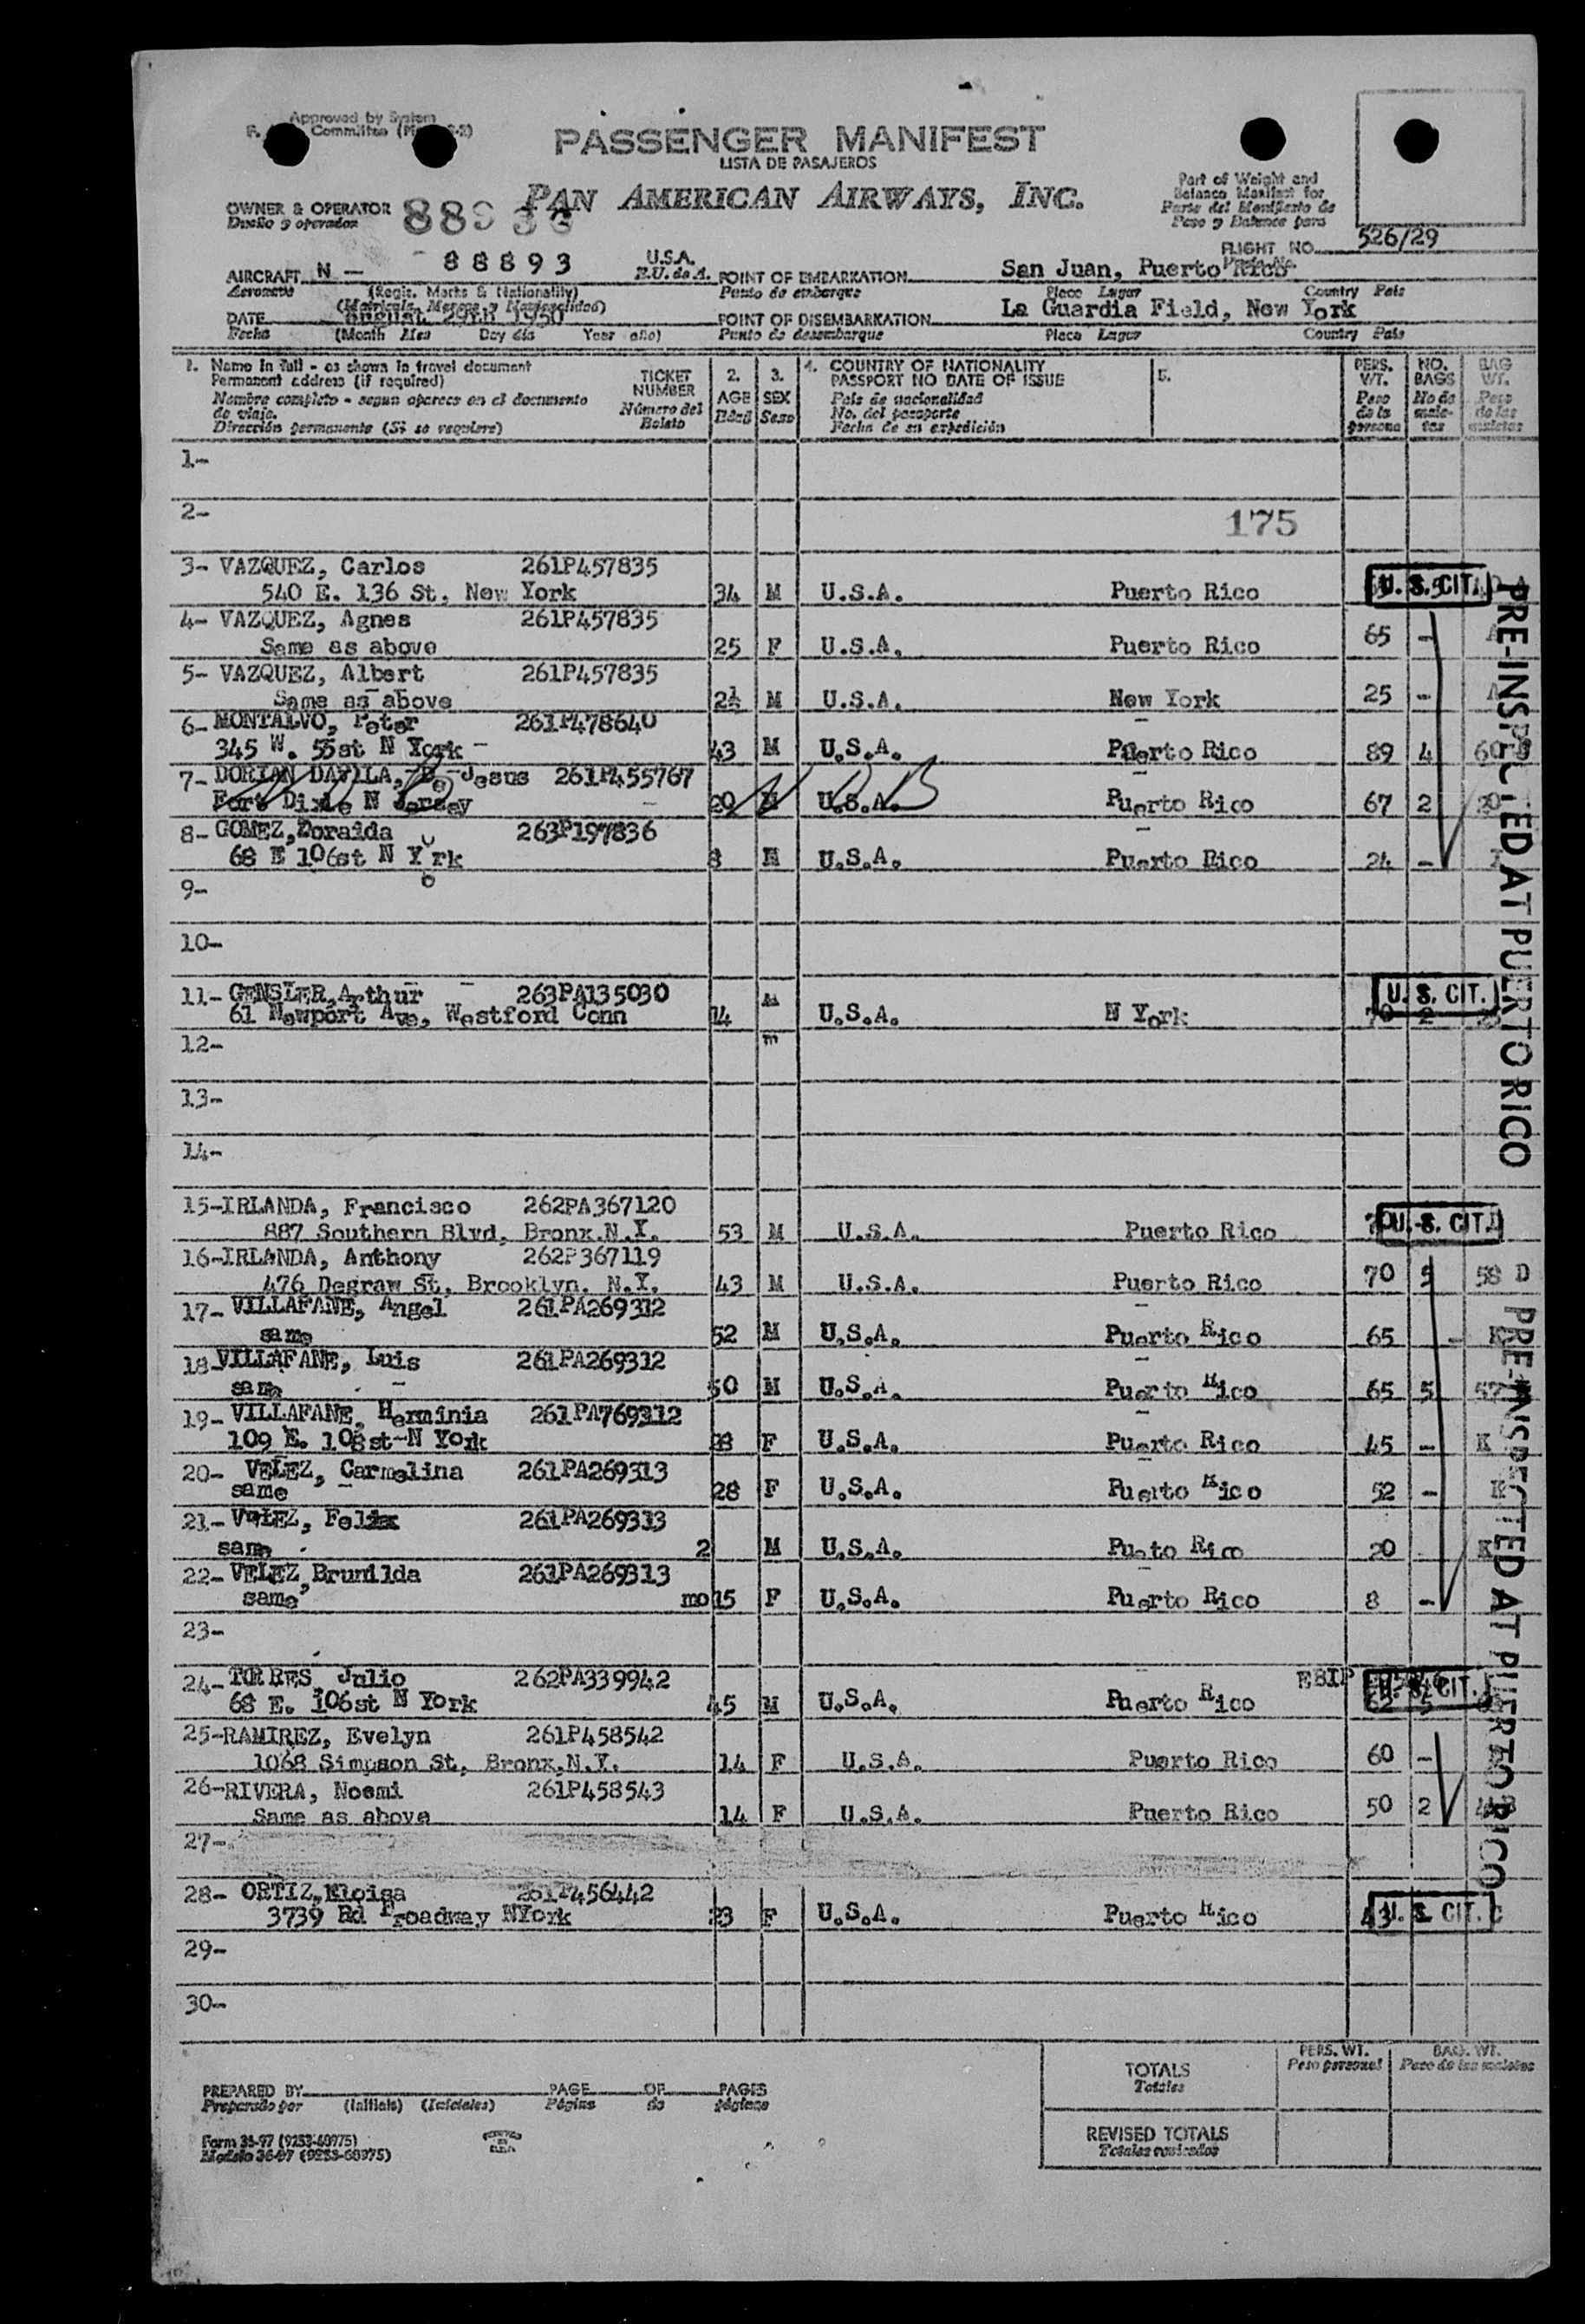 Approved by System
Committee
PASSENGER MANIFEST
LISTA DE PASAJEROS
PAN AMERICAN AIRWAYS, INC.
Part of Weight and
Balance Manifest for
Parte del Manifiesto de
Peso y Balance para
OWNER & OPERATOR
Dueño y operador
FLIGHT NO. 526/29
AIRCRAFT N - 88893 U.S.A.
Aeronave E.U. de A.
(Regis. Marks & Nationality)
(Matricula, Marcas y Nacionalidad)
POINT OF EMBARKATION San Juan, Puerto Rico
Punto de embarque Place Lugar Country Pais
DATE August 29th 1950
Fecha (Month Mes Day dia Year año)
POINT OF DISEMBARKATION La Guardia Field, New York
Punto de desembarque Place Lugar Country Pais
1. Name in full - as shown in travel document
Permanent address (if required)
Nombre completo - segun aparece en el documento
de viaje.
Dirección permanente (Si se requiere)
TICKET
NUMBER
Número del
Boleto
2.
AGE
Edad
3.
SEX
Sexo
4. COUNTRY OF NATIONALITY
PASSPORT NO DATE OF ISSUE
Pais de nacionalidad
No. del pasaporte
Fecha de su expedición
5.
PERS.
WT.
Peso
de la
persona
NO.
BAGS
No de
male-
tas
BAG
WT.
Peso
de las
maletas
1-
2-
175
3- VAZQUEZ, Carlos 261P457835
540 E. 136 St. New York 34 M U.S.A. Puerto Rico U. S. CIT.
4- VAZQUEZ, Agnes 261P457835
Same as above 25 F U.S.A. Puerto Rico 65 -
5- VAZQUEZ, Albert 261P457835
Same as above 2½ M U.S.A. New York 25 -
6- MONTALVO, Peter 261P478640
345 W. 55st N York 43 M U.S.A. Puerto Rico 89 4 60
7- DORIAN DAVILA, De Jesus 261P455767
Fort Dixie N Jersey 20 M U.S.A. Puerto Rico 67 2 20
8- GOMEZ, Zoraida 263P197836
68 E 106st N York 8 U.S.A. Puerto Rico 24 -
9-
10-
11- GENSLER, Arthur 263PA135030
61 Newport Ave, Westford Conn 14 M U.S.A. N York 70 2 U. S. CIT.
12-
13-
14-
15-IRLANDA, Francisco 262PA367120
887 Southern Blvd, Bronx.N.Y. 53 M U.S.A. Puerto Rico U. S. CIT.
16-IRLANDA, Anthony 262P367119
476 Degraw St, Brooklyn. N.Y. 43 M U.S.A. Puerto Rico 70 5 58 D
17- VILLAFANE, Angel 261PA269312
same 52 M U.S.A. Puerto Rico 65 -
18-VILLAFANE, Luis 261PA269312
same 50 M U.S.A. Puerto Rico 65 5 57
19- VILLAFANE, Herminia 261PA769312
109 E. 108st-N York F U.S.A. Puerto Rico 45 - K
20- VELEZ, Carmelina 261PA269313
same 28 F U.S.A. Puerto Rico 52 - K
21- VELEZ, Felix 261PA269313
same 2 M U.S.A. Pueto Rico 20 K
22- VELEZ, Brunilda 261PA269313
same mo 15 F U.S.A. Puerto Rico 8 -
23-
24- TORRES, Julio 262PA339942
68 E. 106st N York 45 M U.S.A. Puerto Rico U. S. CIT.
25-RAMIREZ, Evelyn 261P458542
1068 Simpson St, Bronx,N.Y. 14 F U.S.A. Puerto Rico 60 -
26-RIVERA, Noemi 261P458543
Same as above 14 F U.S.A. Puerto Rico 50 2
27-
28- ORTIZ, Eloisa 261P456442
3739 Rd Broadway NYork 23 F U.S.A. Puerto Rico 43 U. S. CIT.
29-
30-
PRE-INSPECTED AT PUERTO RICO
PRE-INSPECTED AT PUERTO RICO
TOTALS
Totales
PERS. WT.
Peso personal
BAG. WT.
Peso de las maletas
REVISED TOTALS
Totales revisados
PREPARED BY PAGE OF PAGES
Preparado por (Initials) (Iniciales) Página de páginas
Form 36-97 (9253-68975)
Modelo 36-97 (9253-68975)